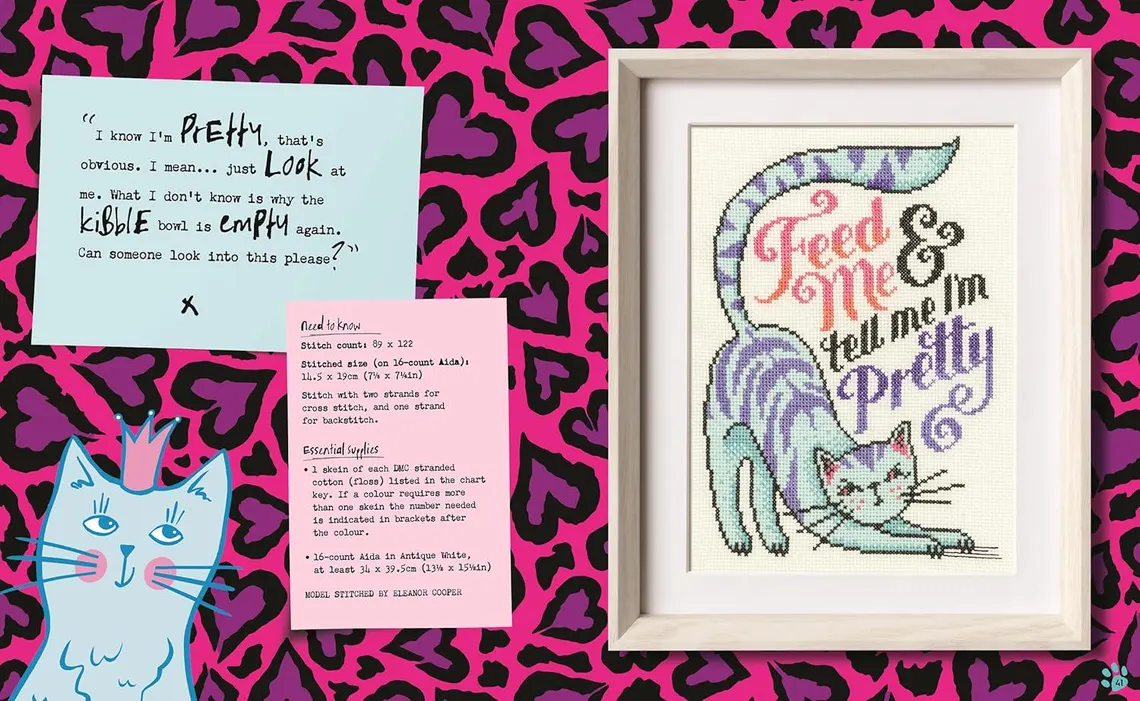 “I know I'm PrEtty, that's
obvious. I mean... just LOOk at
me. What I don't know is why the
kiBBlE bowl is Empty again.
Can someone look into this please?”
X
Need to know
Stitch count: 89 x 122
Stitched size (on 16-count Aida):
14.5 x 19cm (7¼ x 7¼in)
Stitch with two strands for
cross stitch, and one strand
for backstitch.
Essential supplies
• 1 skein of each DMC stranded
cotton (floss) listed in the chart
key. If a colour requires more
than one skein the number needed
is indicated in brackets after
the colour.
• 16-count Aida in Antique White,
at least 34 x 39.5cm (13¼ x 15½in)
MODEL STITCHED BY ELEANOR COOPER
Feed &
Me
tell me I'm
Pretty
41